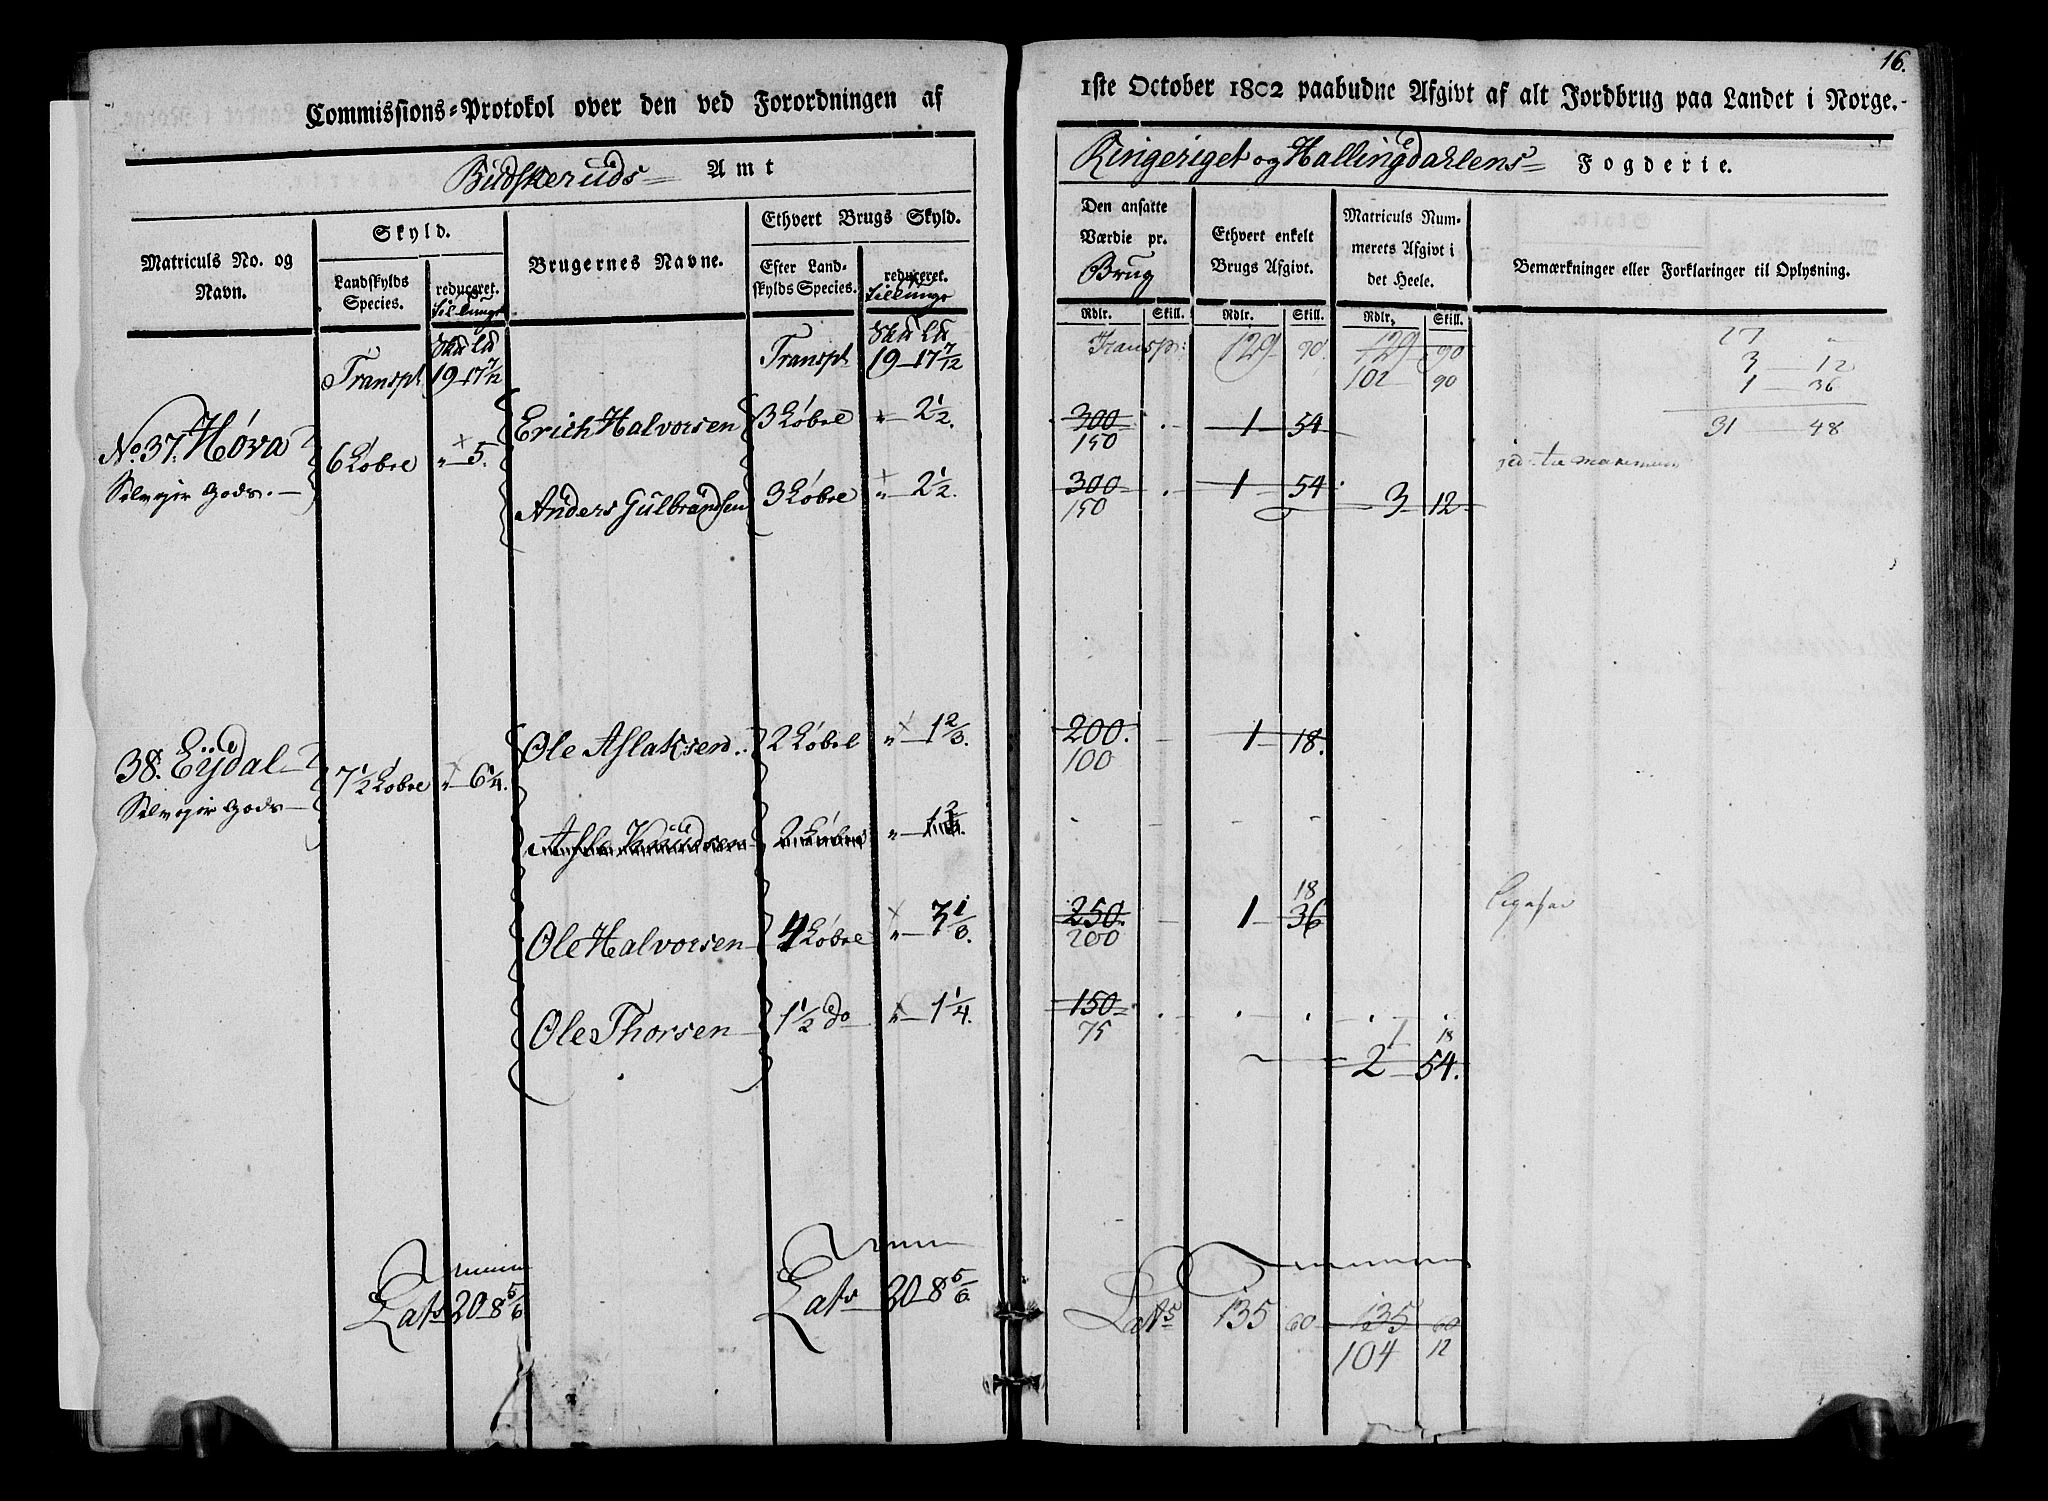 Commissions-Protokol over den ved Forordningen af
Budskeruds Amt
Matriculs No. og Navn.
Skyld.
Landskylds Species.
reduceret.
Brugernes Navne.
Ethvert Brugs Skyld.
Efter Landskylds Species.
reduceret.
Transpt 19 - 17 7/12
Transpt 19 - 17 7/12
No. 37. Hóva 6 Lóbre " - 5. Erich Halvorsen 3 Lóbre " - 2 1/2.
Selvejer Gods. - Anders Gulbrandsen 3 Lóbre " - 2 1/2.
38. Eÿdal 7 1/2 Lóbre " - 6 1/4. Ole Aslaksen 2 Lóbre " - 1 2/3.
Selvejer Gods -
2 Lóbre " -
Ole Halvorsen 4 Lóbre " - 3 1/3.
Ole Thorsen 1 1/2 do " - 1 1/4.
Lats 20 - 8 5/6
Lats 20 - 8 5/6.
16.
1ste October 1802 paabudne Afgivt af alt Jordbrug paa Landet i Norge.
Ringeriget og Hallingdahlens Fogderie.
Den ansatte Værdie pr. Brug
Ethvert enkelt Brugs Afgivt.
Matriculs Nummerets Afgivt i det Heele.
Bemærkninger eller Forklaringer til Oplysning.
Rdlr. Skill. Rdlr. Skill. Rdlr. Skill.
Transp: 129 90. 129 90
102 90
27 "
3 - 12
1 - 36
31 - 48
300 1 54
150
300 1 54 3 12
150
200. 1 18.
100
18
250 1 36
200
150
75
1 18
2 54.
Lats 135 60 135 60
104 12